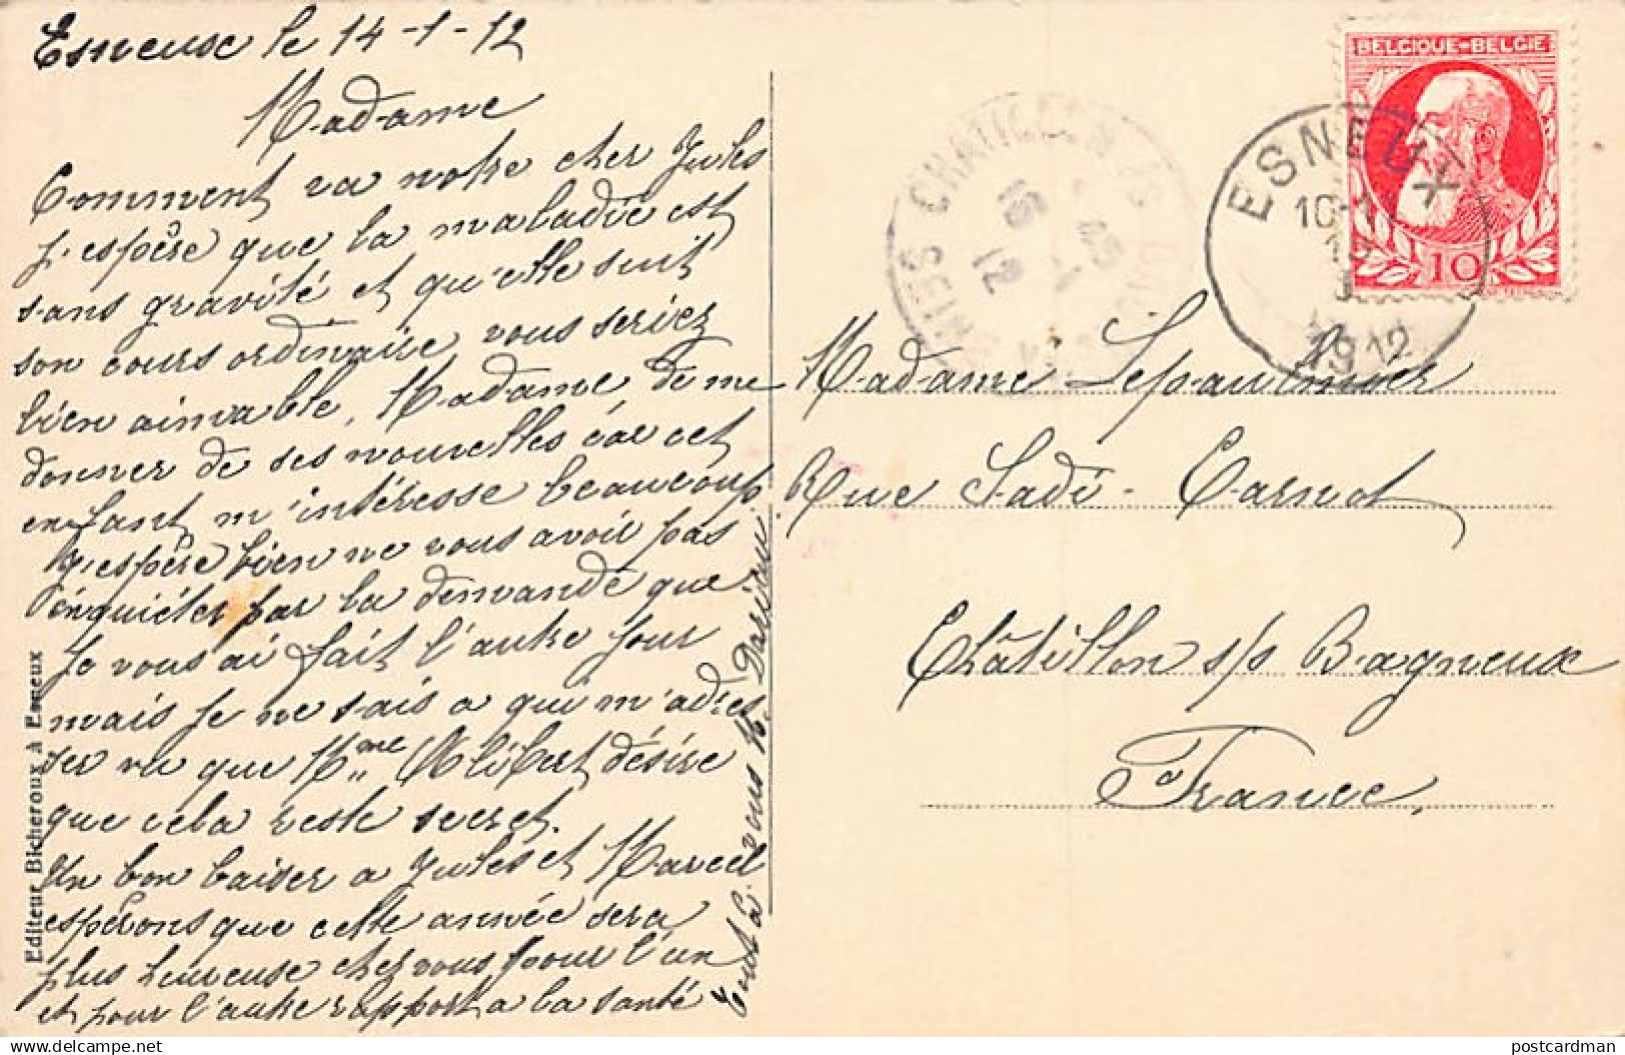 Esneux le 14-1-12
Madame
Comment va notre cher Jules
j'espère que la maladie est
sans gravité et qu'elle suit
son cours ordinaire vous seriez
bien aimable, Madame de me
donner de ses nouvelles car cet
enfant m'intéresse beaucoup
J'espère bien ne vous avoir pas
enquiéter par la demande que
Je vous ai fait l'autre jour
mais je ne sais a qui m'adres
ser vu que Mme Alibert désire
que cela reste secret.
Un bon baiser a Jules et Marcel
espérons que cette année sera
plus heureuse chez vous pour l'un
et pour l'autre rapport a la santé
Tout à vous
Editeur Bicheroux à Esneux
BELGIQUE-BELGIE
10
ESNEUX
10-1
15
1912
CHATILLON
12
Madame Lepaulmier
Rue Sadi-Carnot
Châtillon s/s Bagneux
France
postcardman